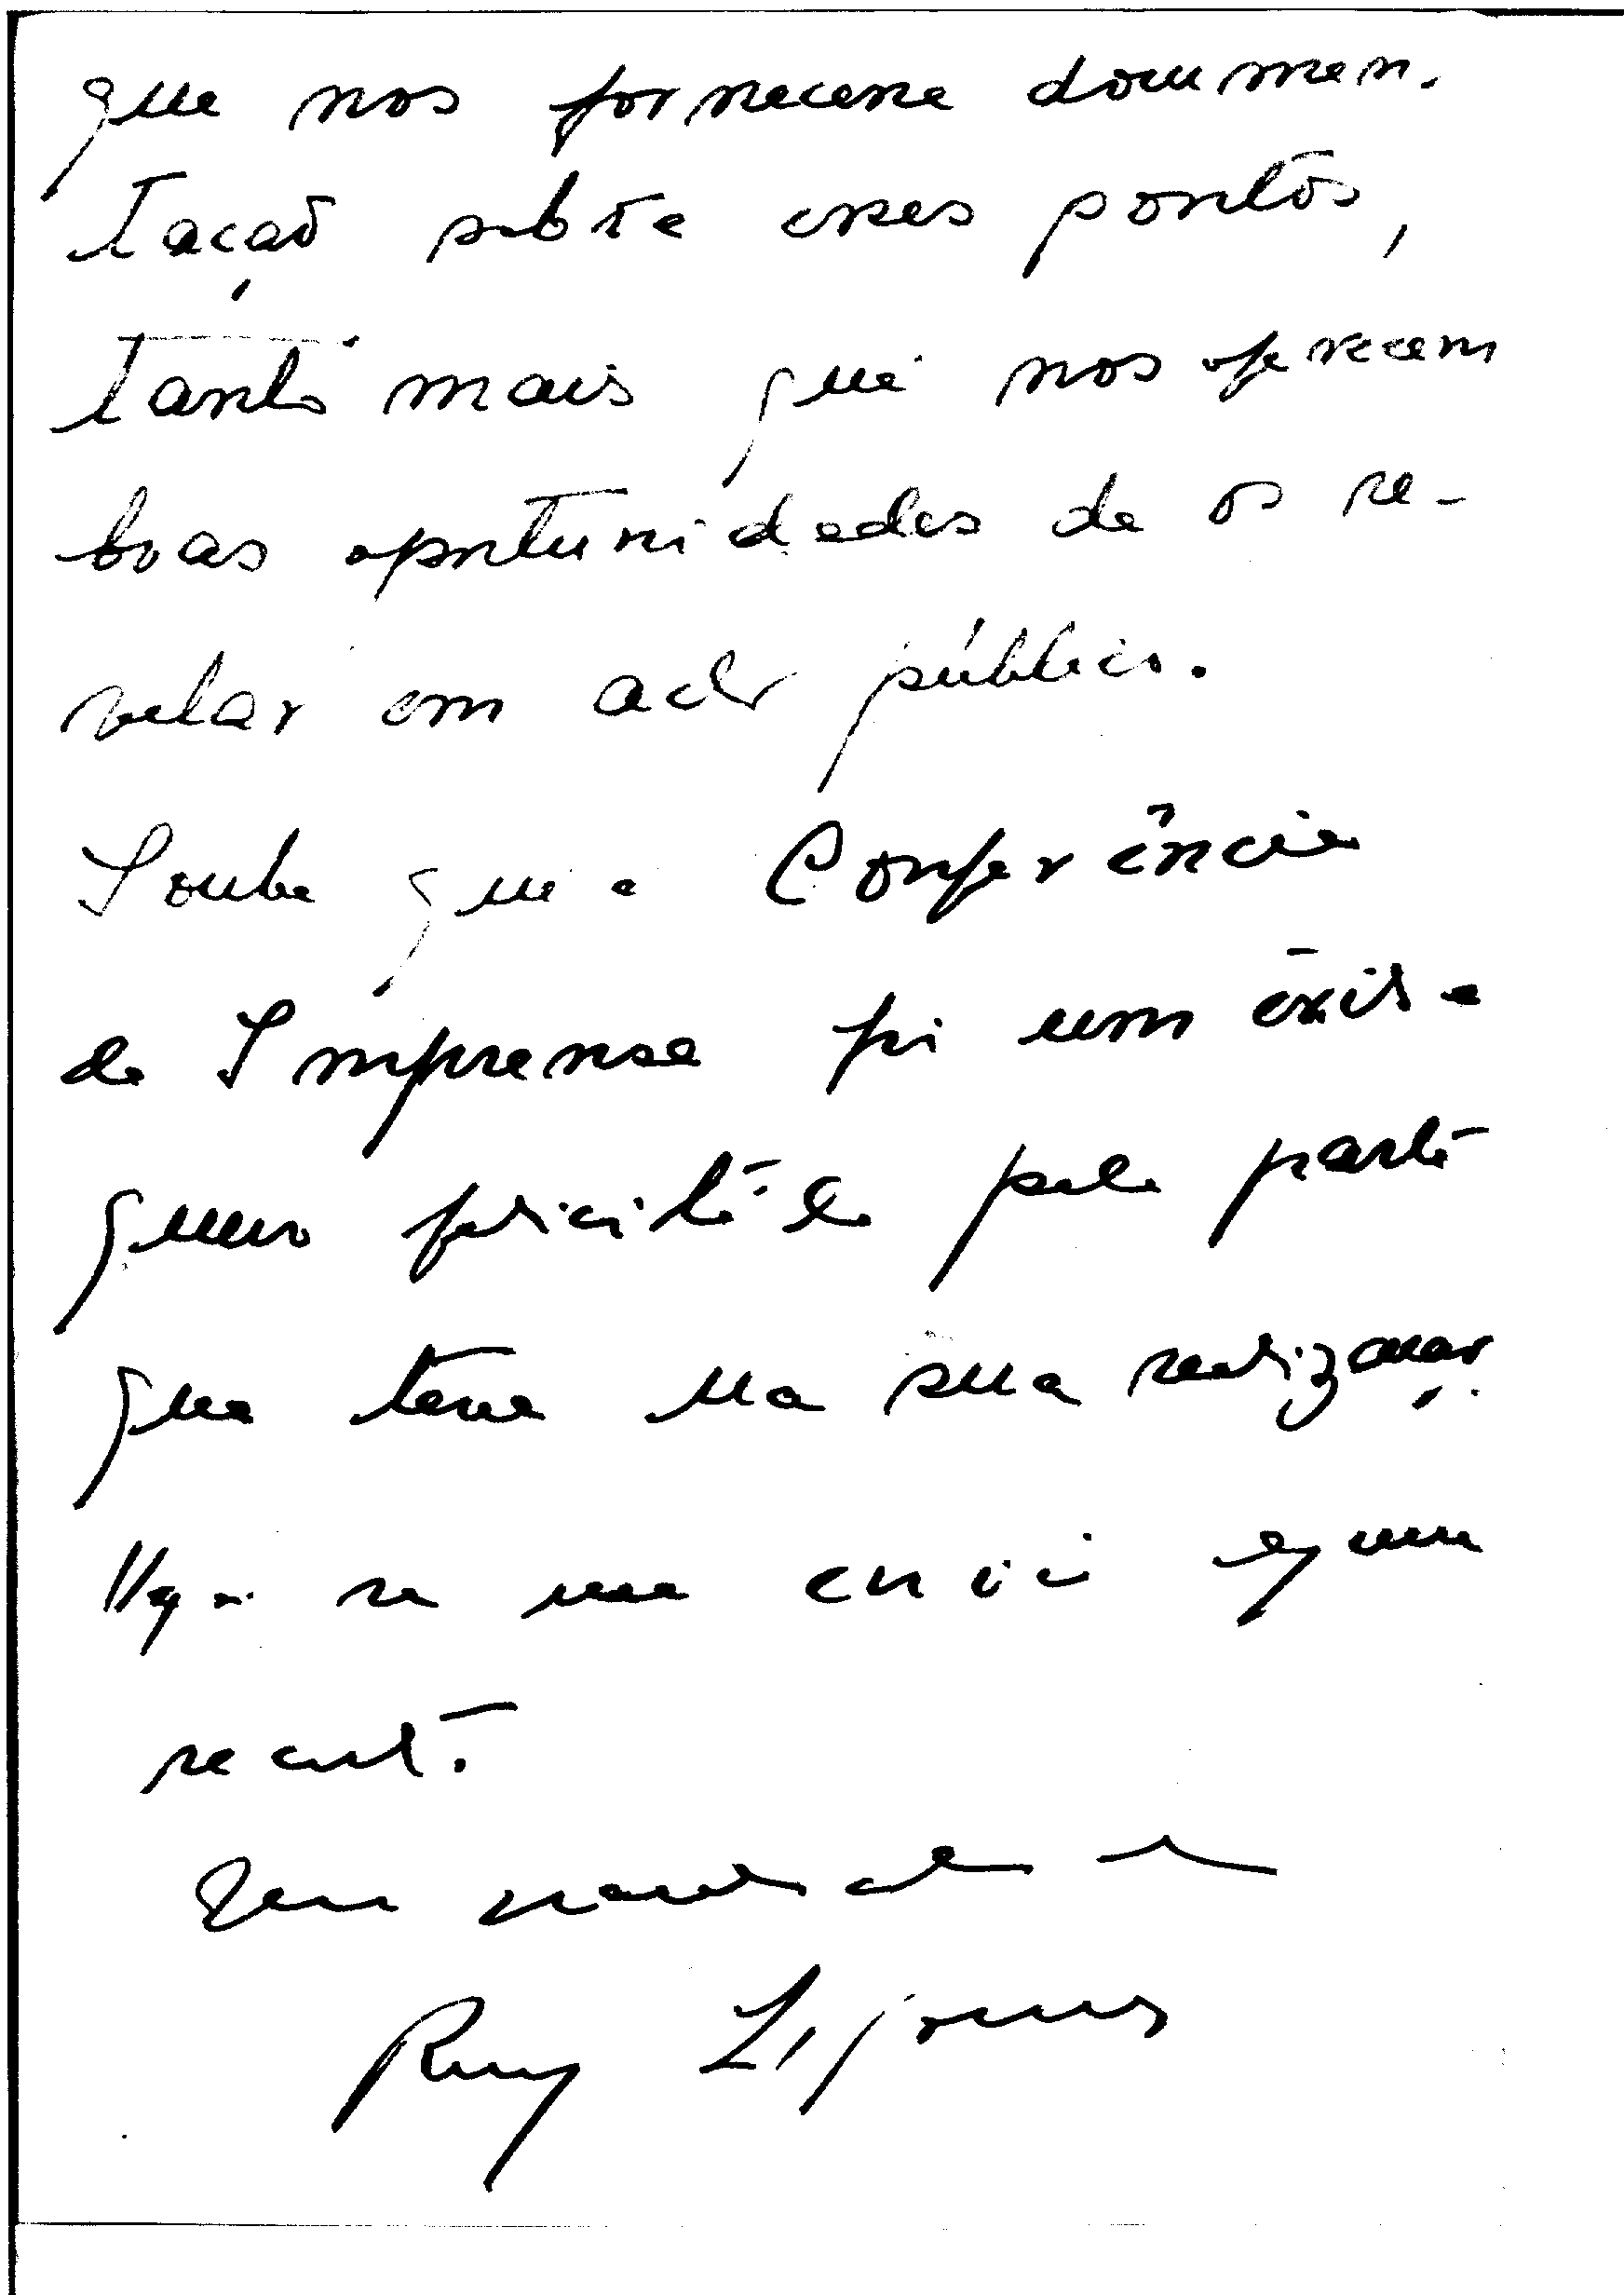 que nos fornecesse documen-
tação sobre esses pontos,
tanto mais que nos oferecem
boas oportunidades de os re-
velar em acto público.
Soube que a Conferência
de Imprensa foi um êxito e
quero felicitá-lo pela parte
que teve na sua realização.
se me envie algum
recorte.
Ruy